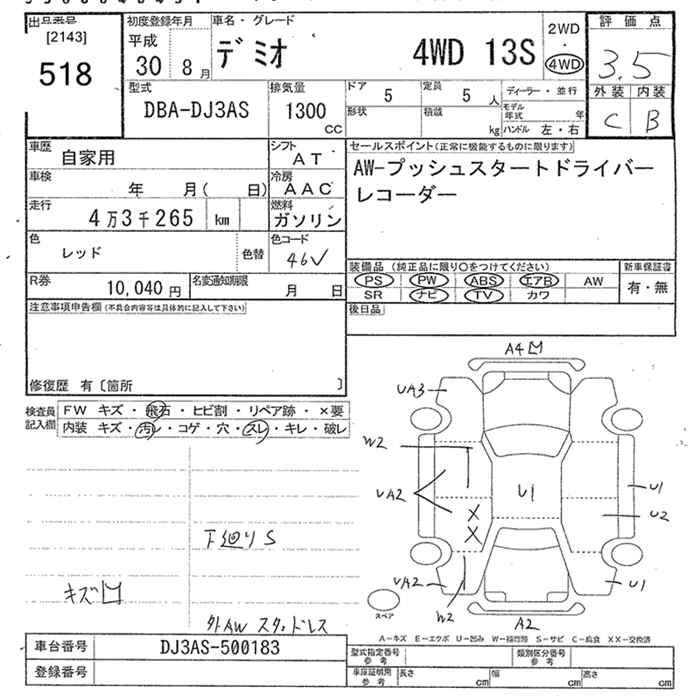 出品番号
[2143]
518
初度登録年月
平成
30 8月
車名・グレード
デミオ 4WD 13S
2WD
・
4WD
評価点
3.5
外装 内装
C B
型式
DBA-DJ3AS
排気量
1300
CC
ドア
5
定員
5 人
形状
積載
kg
ディーラー・並行
モデル年式 年
ハンドル 左・右
車歴
自家用
シフト
AT
車検
年 月( 日)
冷房
AAC
走行
4万3千265 km
燃料
ガソリン
色
レッド
色替
色コード
46V
R券
10,040 円
名変通知期限
月 日
セールスポイント(正常に機能するものに限ります)
AW-プッシュスタートドライバー
レコーダー
装備品 (純正品に限り○をつけてください)
PS PW ABS エアB AW
SR ナビ TV カワ
新車保証書
有・無
後日品
注意事項申告欄(不具合内容等は具体的に記入して下さい)
修復歴 有〔箇所 〕
検査員
記入欄
FW キズ・飛石・ヒビ割・リペア跡・×要
内装 キズ・汚レ・コゲ・穴・スレ・キレ・破レ
下廻りS
キズ
外AW スタッドレス
A4
UA3
W2
UA2
U1
X
X
U1
U2
UA2
W2
U1
A2
スペア
A－キズ E－エクボ U－凹み W－補修跡 S－サビ C－腐食 XX－交換済
車台番号
DJ3AS-500183
登録番号
型式指定番号
参考
類別区分番号
参考
車庫証明用
参考
長さ cm
幅 cm
高さ cm